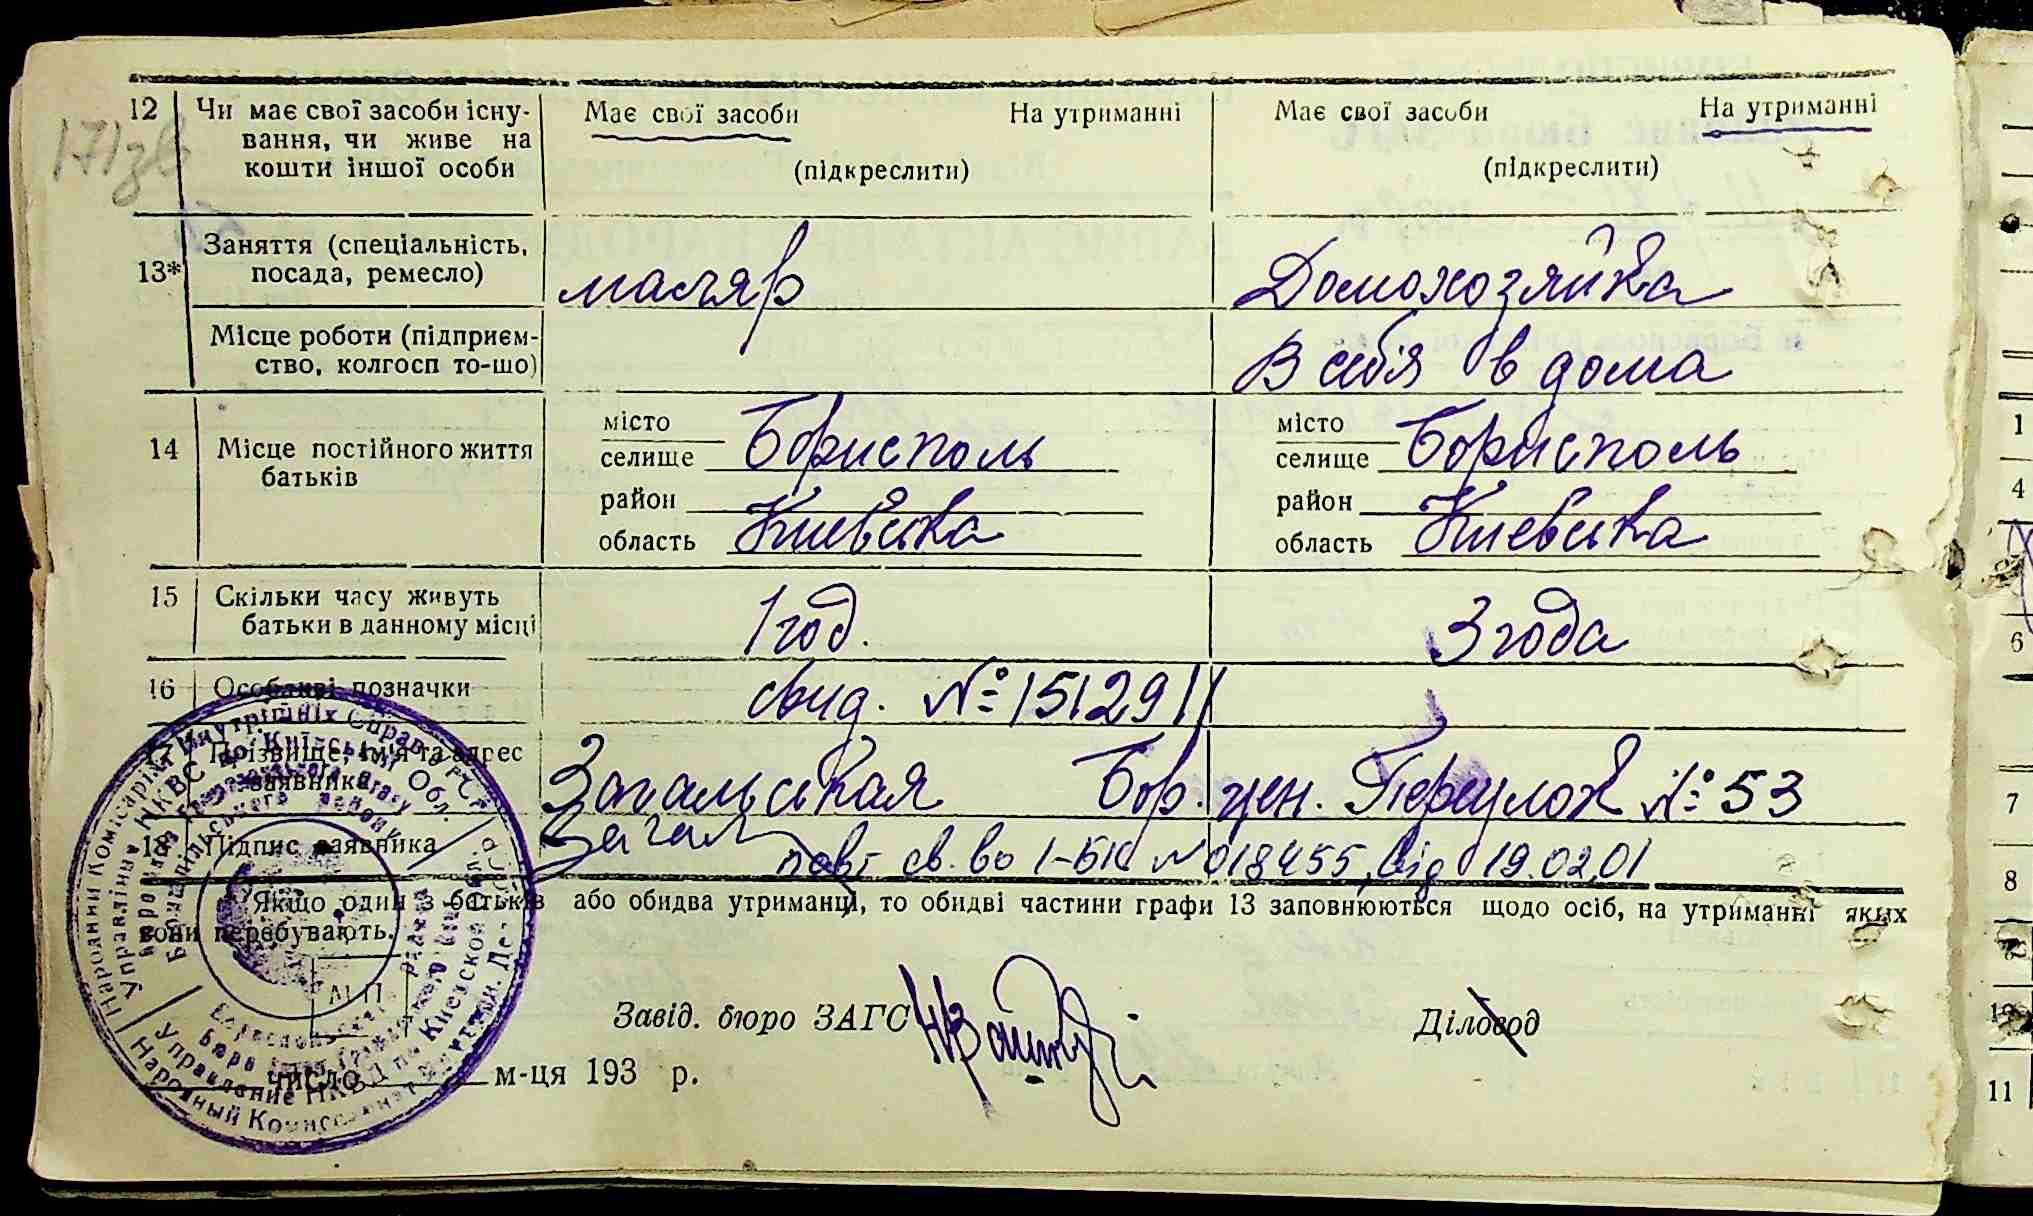 12 Чи має свої засоби існу- Має свої засоби На утриманні Має свої засоби На утриманні
вання, чи живе на
кошти іншої особи (підкреслити) (підкреслити)
171зв
13* Заняття (спеціальність, посада, ремесло) маляр Домохозяйка
Місце роботи (підприєм-
ство, колгосп то-що) В себія в дома
14 Місце постійного життя батьків
місто місто
селище Борисполь селище Борисполь
район район
область Киевська область Киевська
15 Скільки часу живуть
батьки в данному місці 1 год. 3 года
16 Особливі позначки свид. № 151291
17 Прізвище, ім'я та адрес
заявника Загальская Бор. цен. Переулок № 53
18 Підпис заявника Загал
повт св. во 1-БК № 018455, від 19.02.01
Якщо один з батьків або обидва утриманці, то обидві частини графи 13 заповнюються щодо осіб, на утриманні яких
вони перебувають.
М П
Завід. бюро ЗАГС Діловод
число м-ця 193 р.
Народний Комісаріят Внутрішніх Справ УРСР
Управління НКВС по Київській Обл.
Управление НКВД по Киевской
Народный Комиссариат Внуттрен. Дел
1
4
6
7
8
10
11